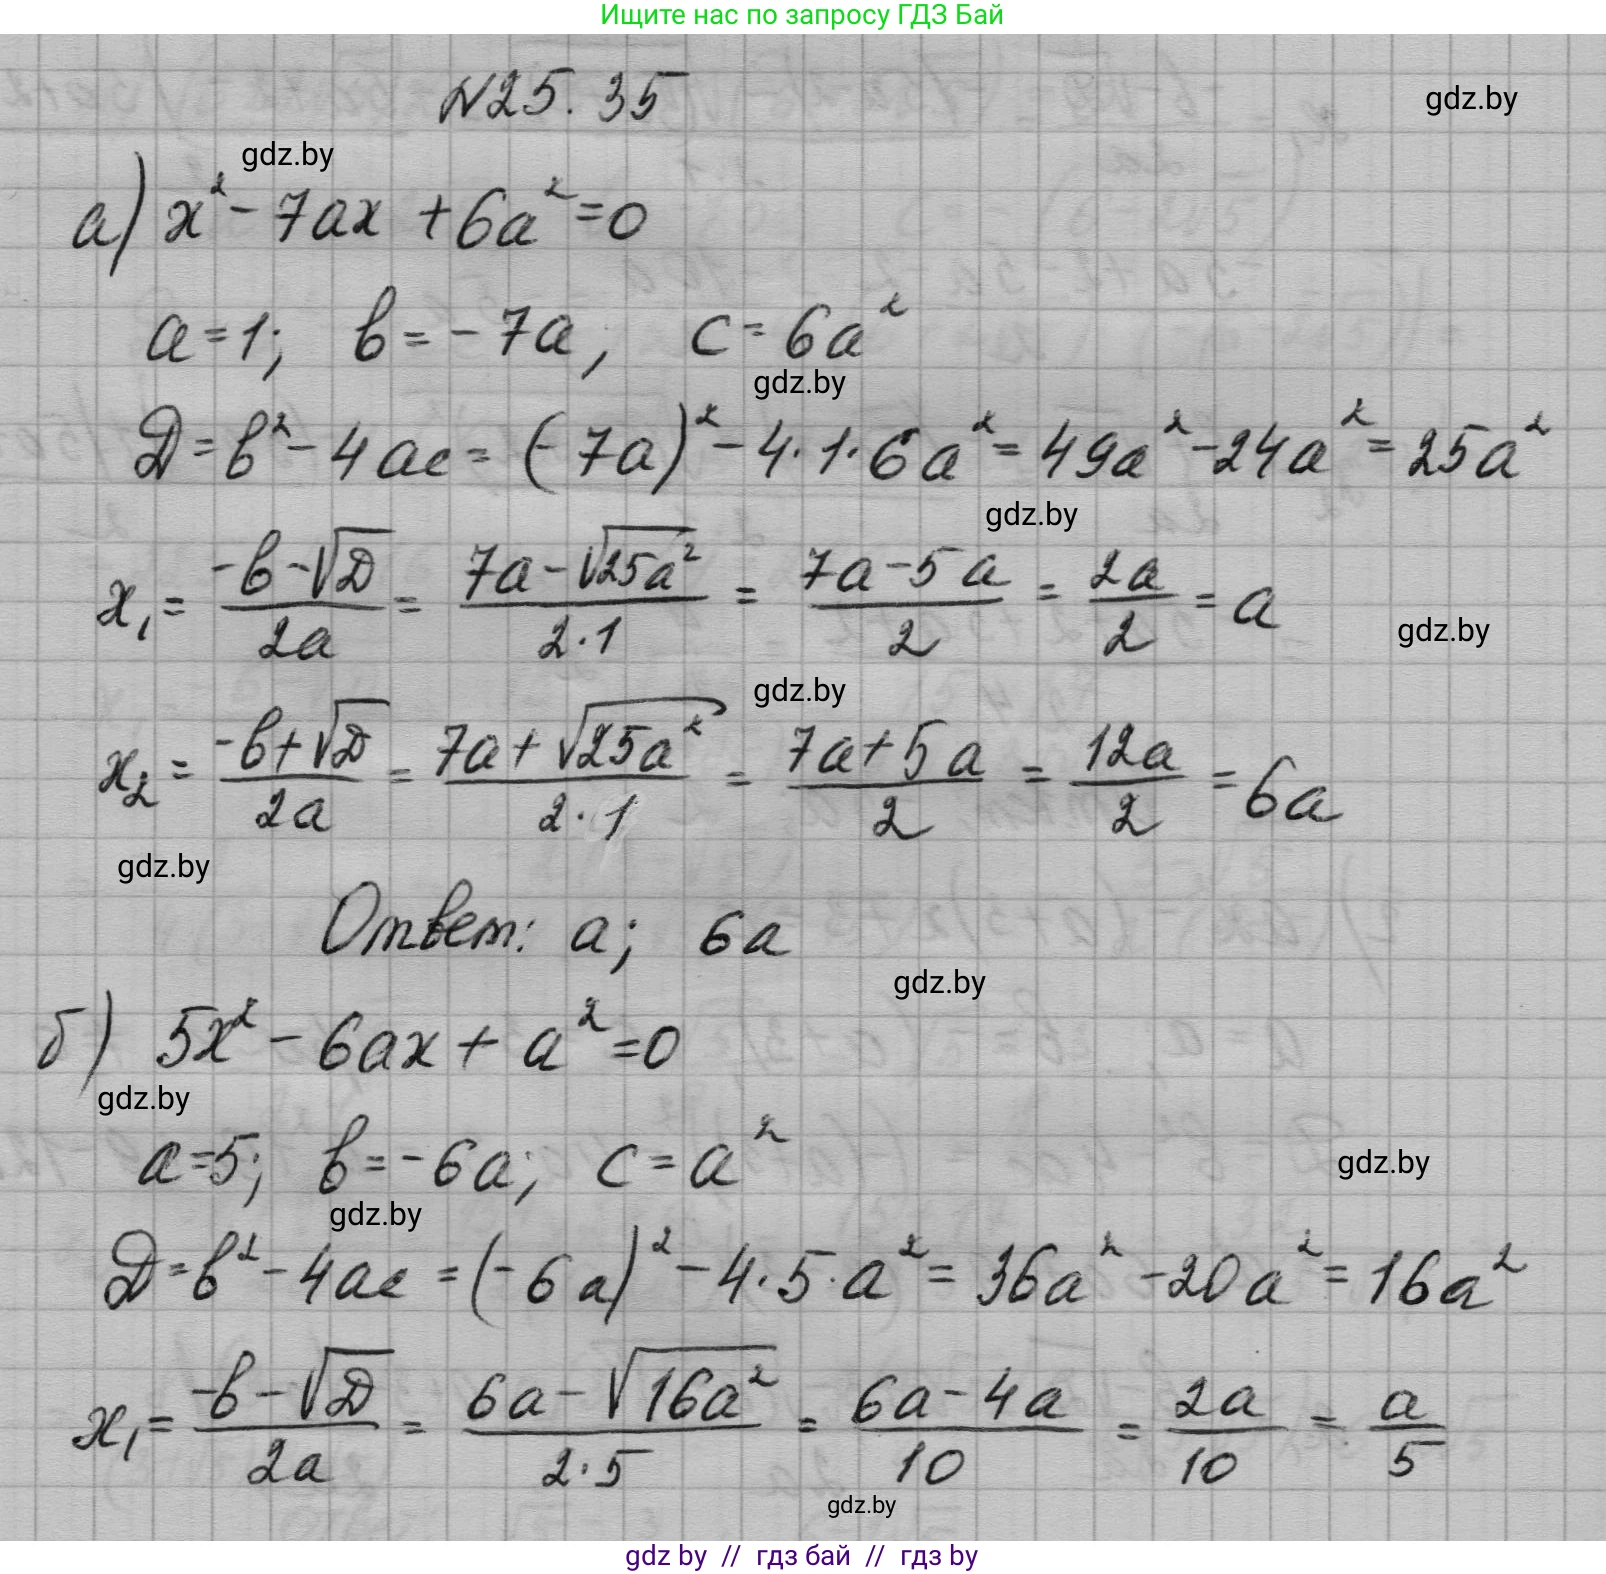 Ищите нас по запросу ГДЗ Бай
№25.35
gdz.by
gdz.by
а) x² - 7ax + 6a² = 0
a = 1; в = -7a; c = 6a²
gdz.by
Д = в² - 4ac = (-7a)² - 4·1·6a² = 49a² - 24a² = 25a²
gdz.by
x₁ = (-в - √Д)/2a = (7a - √25a²)/(2·1) = (7a - 5a)/2 = 2a/2 = a
gdz.by
gdz.by
x₂ = (-в + √Д)/2a = (7a + √25a²)/(2·1) = (7a + 5a)/2 = 12a/2 = 6a
gdz.by
Ответ: a; 6a
gdz.by
б) 5x² - 6ax + a² = 0
gdz.by
a = 5; в = -6a; c = a²
gdz.by
gdz.by
Д = в² - 4ac = (-6a)² - 4·5·a² = 36a² - 20a² = 16a²
x₁ = (-в - √Д)/2a = (6a - √16a²)/(2·5) = (6a - 4a)/10 = 2a/10 = a/5
gdz.by
gdz by // гдз бай // гдз by